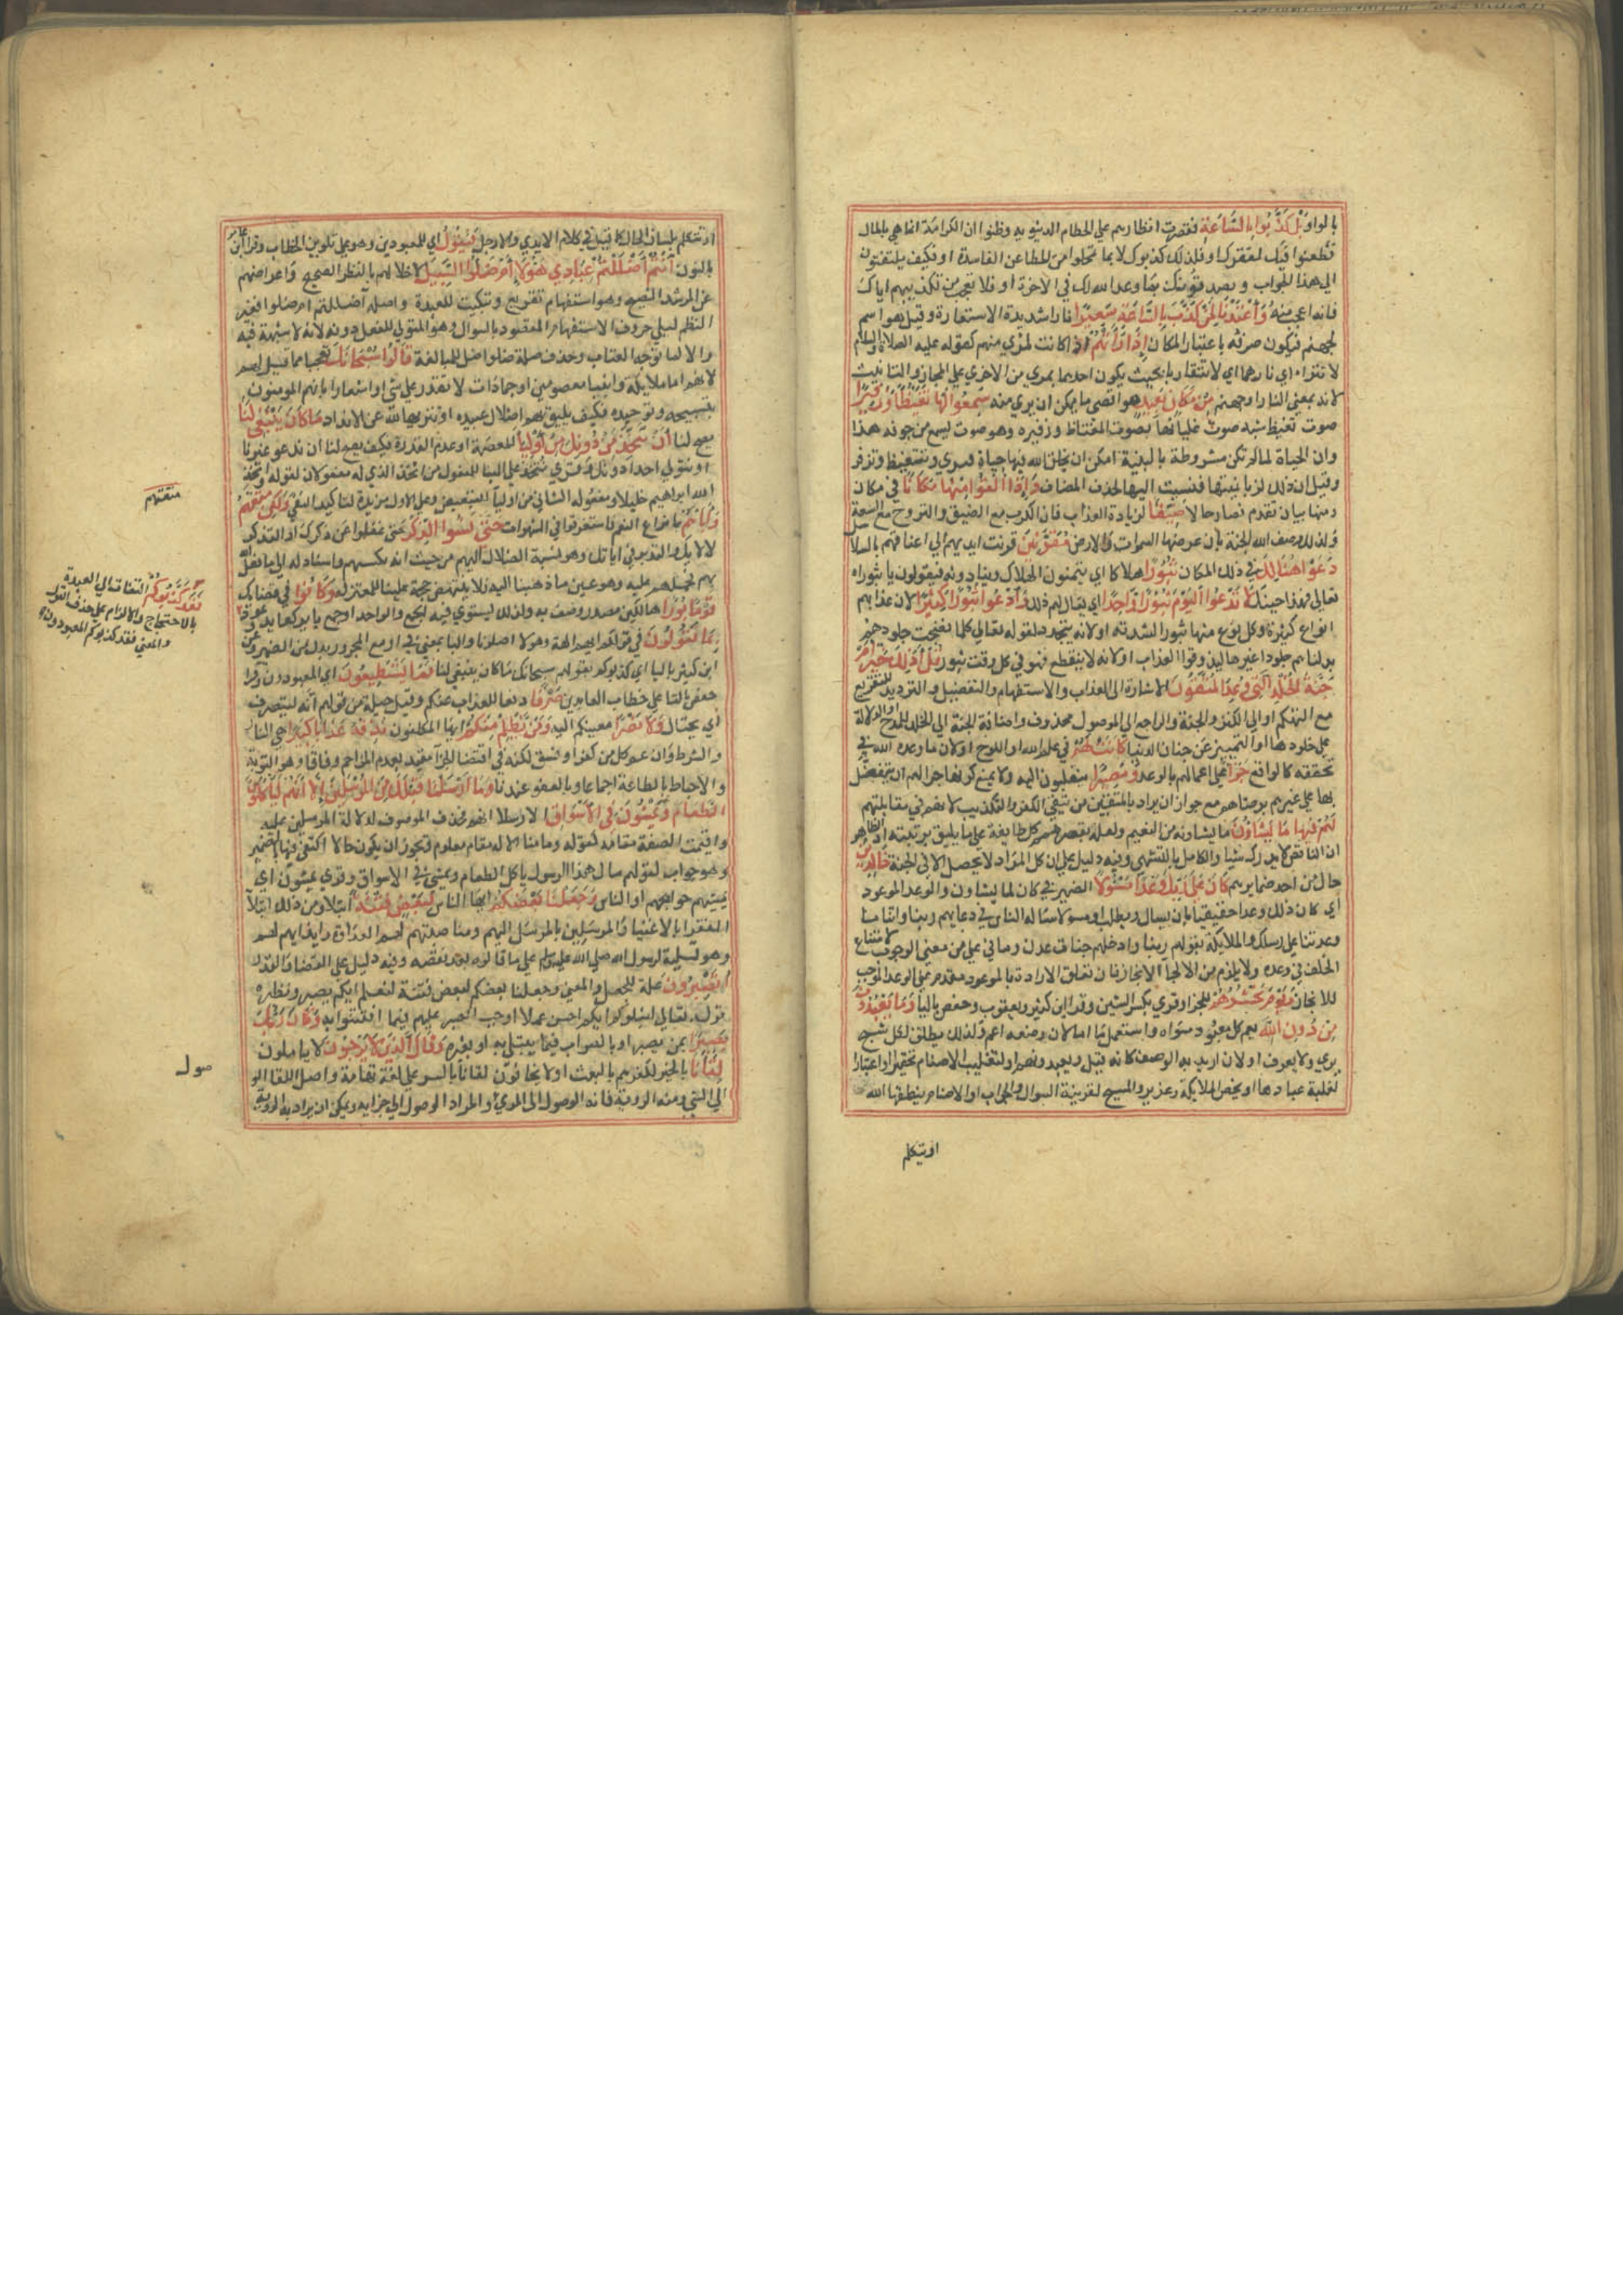 بالواو بل كذبوا بالساعة فقصرت انظارهم علي الحطام الدنيويه وظنوا ان الكرامة انما هي بالمال
فطعنوا فيك لفقرك او فلذلك كذبوك لا بما تمحلوا من المطاعن الفاسدة او فكيف يلتفتون
الي هذا الجواب ويصدقونك بما وعد الله لك في الاخرة او فلا تعجب من تكذيبهم اياك
فانه اعجب منه واعتدنا لمن كذب بالساعة سعيرا نارا شديدة الاستعارة وقيل هو اسم
لجهنم فيكون صرفه باعتبار المكان اذا راتهم اذا كانت بمراي منهم كقوله عليه الصلاة والسلام
لا تتراا اي ناراهما اي لا تتقاربا بحيث يكون احديهما بمرى من الاخري علي المجاز والتانيث
لانه بمعني النار او جهنم من مكان بعيد هو اقصى ما يمكن ان يري منه سمعوا لها تغيظا وزفيرا
صوت تغيظ شبه صوت غليانها بصوت المغتاظ وزفيره وهو صوت يسمع من جوفه هذا
وان الحياة لما لم تكن مشروطة بالبنية امكن ان يخلق الله فيها حياة فتري وتتغيظ وتزفر
وقيل ان ذلك لزبانيتها فنسبت اليها لحذف المضاف واذا القوا منها مكانا في مكان
ومنها بيان تقدم فصار حالا ضيقا لزيادة العذاب فان الكرب مع الضيق والتروح مع السعة
ولذلك وصف الله الجنة بان عرضها السموات والارض مقرنين قرنت ايديهم الي اعناقهم بالسلاسل
دعوا هنالك في ذلك المكان ثبورا هلاكا اي يتمنون الهلاك وينادونه فيقولون يا ثبوراه
تعالي فهذا حينك لا تدعوا اليوم ثبورا واحدا اي يقال لهم ذلك وادعوا ثبورا كثيرا لان عذابهم
انواع كثيرة وكل نوع منها ثبور لشدته او لانه يتجدد لقوله تعالي كلما نضجت جلودهم
بدلناهم جلودا غيرها ليذوقوا العذاب او لانه لا ينقطع فهو في كل وقت ثبور قل اذلك خير ام
جنة الخلد التي وعد المتقون الاشارة الي العذاب والاستفهام والتفضيل والترديد للتقريع
مع التهكم او الي الكنز والجنة والراجع الي الموصول محذوف واضافة الجنة الي الخلد للمدح والدلالة
علي خلودها او التمييز عن جنان الدنيا كانت لهم في علم الله او اللوح او لان ما وعده الله في
تحققه كالواقع جزا علي اعمالهم بالوعد ومصيرا ينقلبون اليه ولا يمنع كونها جزا لهم ان يتفضل
بها علي غيرهم برضاهم مع جواز ان يراد بالمتقين من يتقي الكفر والتكذيب لانهم في مقابلتهم
لهم فيها ما يشاؤن ما يشاونه من النعيم ولعله يقصر همم كل طايفة علي ما يليق برتبته اذ الظاهر
ان الناقص لا يدرك شيا والكامل بالتشهي وفيه دليل علي ان كل المراد لا يحصل الا في الجنة خالدين
حال من احد ضمايرهم كان علي ربك وعدا مسئولا الضمير في كان لما يشاون والوعد الموعود
اي كان ذلك وعدا حقيقيا بان يسال ويطلب او مسولا ساله الناس في دعايهم ربنا واتنا ما
وعدتنا علي رسلك والملايكة بقولهم ربنا وادخلهم جنات عدن وما في علي من معني الوجوب لامتناع
الخلف في وعده ولا يلزم من الالجا الي الانجاز فان تعلق الارادة بالموعود مقدم علي الوعد الموجب
للانجاز ويوم نحشرهم للجزا وقري بكسر الشين وقرا ابن كثير ويعقوب وحفص باليا وما يعبدون
من دون الله يعم كل معبود سواه واستعمل ما اما لان وضعه اعم ولذلك يطلق لكل شبح
يري ولا يعرف او لان اريد به الوصف كانه قيل ومعبودهم او لتغليب الاصنام تحقيرا او اعتبارا
لغلبة عبادها او يخص الملايكة وعزير والمسيح لقرينة السوال والجواب او الاصنام ينطقها الله
او تتكلم
او تتكلم بلسان الحال كما قيل في كلام الايدي والارجل فيقول اي للمعبودين وهو علي تلوين الخطاب وقرا ابن عامر
بالنون اانتم اضللتم عبادي هؤلاء ام هم ضلوا السبيل لاخلالهم بالنظر الصحيح واعراضهم
عن المرشد النصيح وهو استفهام تقريع وتبكيت للعبدة واصله ااضللتم ام ضلوا فغير
النظم ليلي حروف الاستفهام المقصود بالسوال وهو المتولي للفعل دونه لانه لا شبهة فيه
والا لما توجه العتاب وحذف صلة ضلوا ضل للمبالغة قالوا سبحانك تعجبا مما قيل لهم
لانهم اما ملايكة وانبيا معصومين او جمادات لا تقدر علي شي او اشعارا بانهم الموسومون
بتسبيحه وتوحيده فكيف يليق بهم اضلال عبيده او تنزيها لله عن الانداد ما كان ينبغي لنا
يصح لنا ان نتخذ من دونك من اولياء للعصمة او عدم القدرة فكيف يصح لنا ان ندعو غيرنا
او يتولي احدا دونك وقري نتخذ علي البنا للمفعول من اتخذ الذي له مفعولان لقوله واتخذ
الله ابراهيم خليلا ومفعوله الثاني من اوليا للتبعيض وعلي الاول مزيدة لتاكيد النفي ولكن متعتهم
متعتهم
واباءهم بانواع النعم فاستغرقوا في الشهوات حتى نسوا الذكر حتي غفلوا عن ذكرك او التذكر
لالايك والتدبر في اياتك وهو نسبة الضلال اليهم من حيث انه بكسبهم واسناد له الي ما فعل الله
بهم فحملهم عليه وهو عين ما ذهبنا اليه فلا ينتهض حجة علينا للمعتزلة وكانوا في قضايك
قوما بورا هالكين مصدر وصف به ولذلك يستوي فيه الجمع والواحد او جمع باير كعايد وعوذ
فقد كذبوكم التفات الي العبدة
بالاحتجاج والالزام علي حذف القول
والمعني فقد كذبوكم المعبودون
بما تقولون في قولكم انهم الهة وهولا اضلونا والبا بمعني في او مع المجرور بدل من الضمير وعن
ابن كثير باليا اي كذبوكم بقولهم سبحانك ما كان ينبغي لنا فما تستطيعون اي المعبودون وقرا
حفص بالتا علي خطاب العابدين صرفا دفعا للعذاب عنكم وقيل حيلة من قولهم انه ليتصرف
اي يحتال ولا نصرا فيعينكم اليه ومن يظلم منكم ايها المكلفون نذقه عذابا كبيرا هي النار
والشرط وان عم كل من كفر او فسق لكنه في اقتضا الجزا مقيد بعدم المزاحم وفاقا وهو التوبة
والاحباط بالطاعة اجماعا وبالعفو عندنا وما ارسلنا قبلك من المرسلين الا انهم لياكلون
الطعام ويمشون في الاسواق الا رسلا انهم فحذف الموصوف لدلالة المرسلين عليه
واقيمت الصفة مقامه كقوله وما منا الا له مقام معلوم ويجوز ان يكون حالا اكتفي فيها بالضمير
وهو جواب لقولهم مال هذا الرسول ياكل الطعام ويمشي في الاسواق وقري يمشون اي
يمشيهم حوايجهم او الناس وجعلنا بعضكم ايها الناس لبعض فتنة ابتلا ومن ذلك ابتلا
الفقرا بالاغنيا والمرسلين بالمرسل اليهم ومناصبتهم لهم العداوة وايذايهم لهم
وهو تسلية لرسول الله صلي الله عليه وسلم علي ما قالوه بعد نقضه وفيه دليل علي القضا والقدر
اتصبرون علة للجعل والمعني وجعلنا بعضكم لبعض فتنة لنعلم ايكم يصبر ونظيره
قوله تعالي ليبلوكم ايكم احسن عملا او حث علي الصبر عليهم فيما افتتنوا به وكان ربك
بصيرا بمن يصبر او بالصواب فيما يبتلي به او بغيره وقال الذين لا يرجون لا ياملون
لقاءنا بالخير لكفرهم بالبعث او لا يخافون لقانا بالسو علي لغة تهامة واصل اللقا الو
صول
الي الشي ومنه الروية فانه الوصول الي المري والمراد الوصول الي جزايه ويمكن ان يراد به الروية